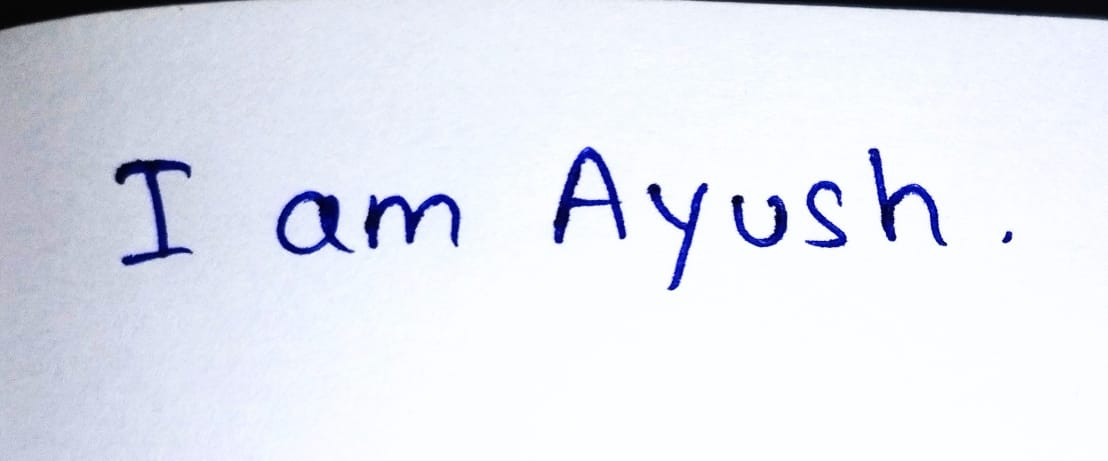 I am Ayush.